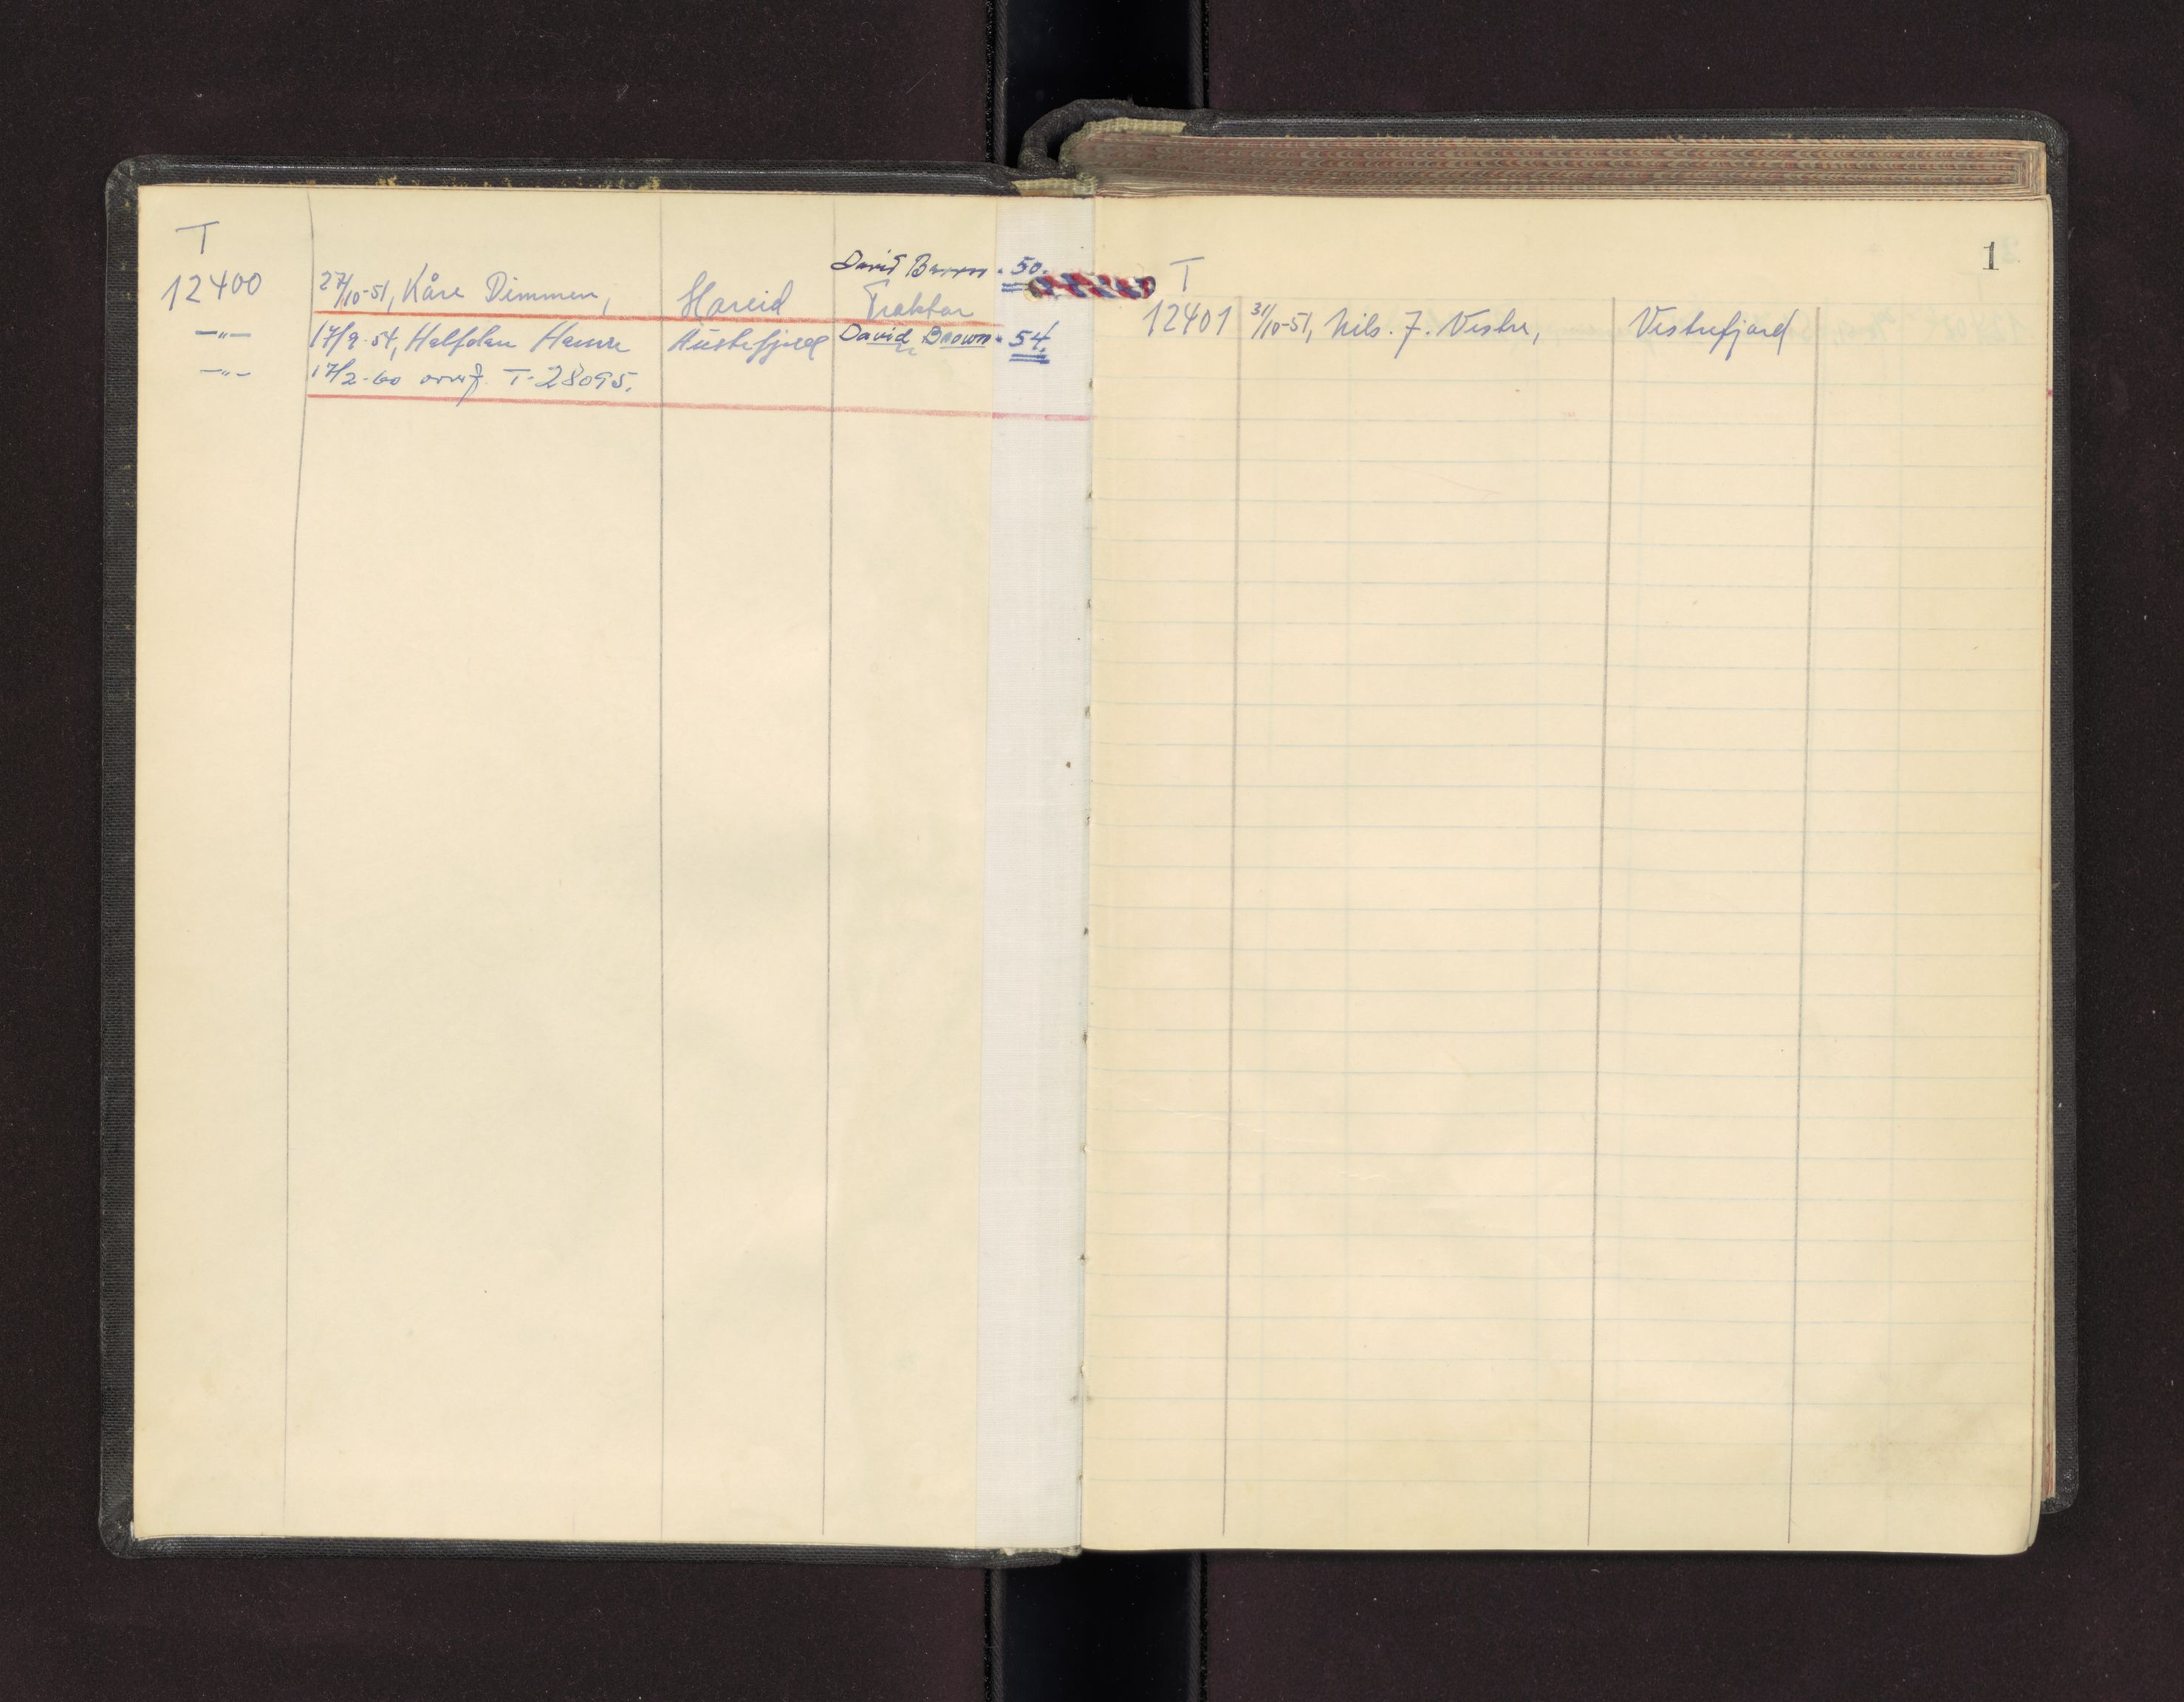 T
David Brown - 50.
12400 27/10-51, Kåre Dimmen, Hareid Traktor
—"— 17/9-54, Halfdan Hamre David Brown - 54.
—"— 17/2-60 overf. T-28095.
1
T
12401 31/10-51, Nils. J. Vestre, Vestrefjord